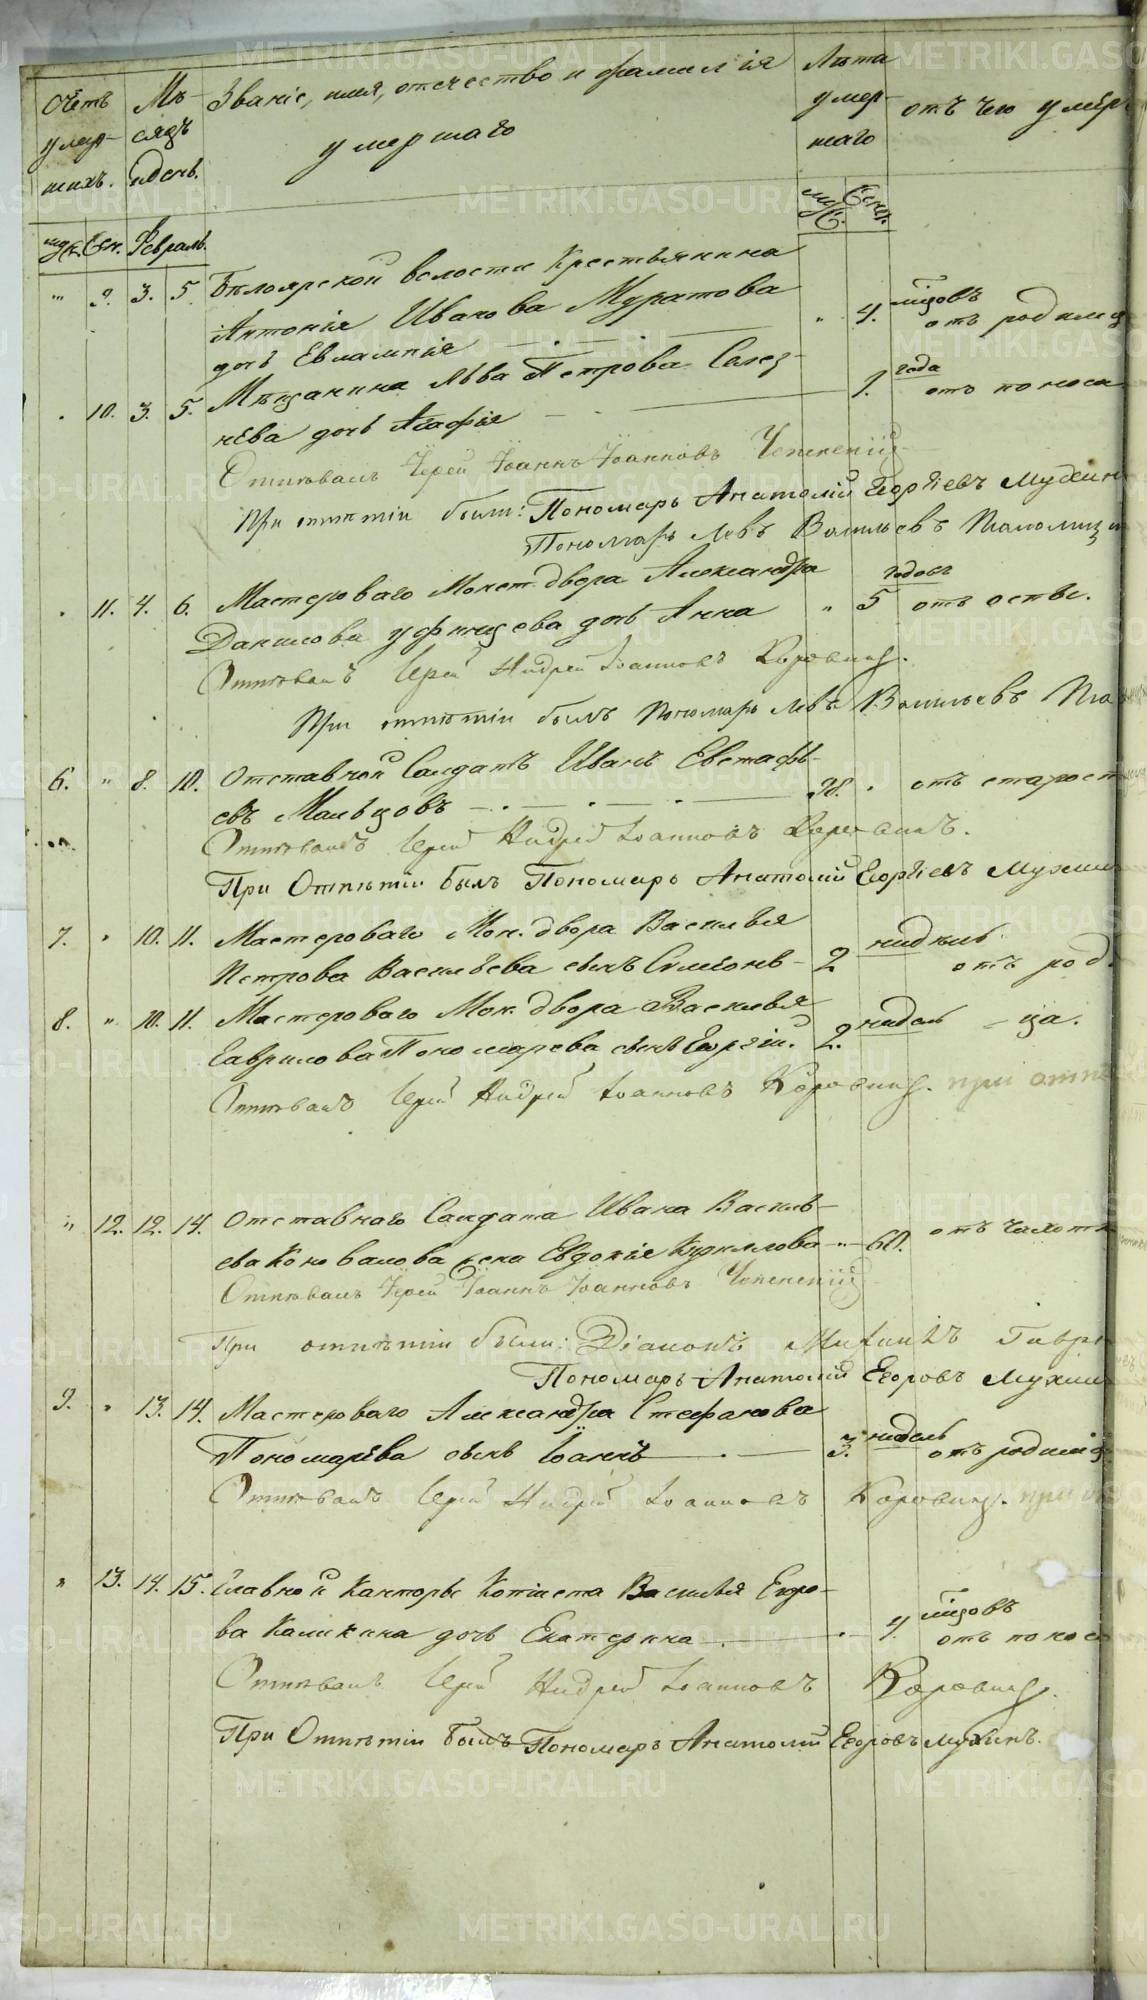 Счетъ умер- шихъ.
Мѣ- сяцъ и день.
Званіе, имя, отечество и фамилія умершаго
Лѣта умер- шаго
отъ чего умеръ
муж. жен. Февраль.
муж. жен.
" 9. 3. 5. Бѣлоярской волости Крестьянина
Антонія Иванова Муратова " 4. мѣсяцовъ отъ родимц
дочь Евлампія
" 10. 3. 5. Мѣщанина Льва Петрова Селез- 1. года отъ поноса
нева дочь Агафія
Отпѣвалъ Іерей Іоаннъ Іоанновъ
При отпѣтіи были: Пономарь Анатолій Егоріевъ Мухин
Пономарь Левъ Васильевъ
" 11. 4. 6. Мастероваго Монет. двора Александра
Данилова Уфинцева дочь Анна " 5 годовъ отъ оспы.
Отпѣвалъ Іерей Андрей Іоанновъ Коровинъ.
При отпѣтіи былъ Пономарь Левъ Васильевъ
6. " 8. 10. Отставной Солдатъ Иванъ Евстафь-
евъ Мальцовъ " отъ старост
Отпѣвалъ Іерей Андрей Іоанновъ Коровинъ.
При Отпѣтіи былъ Пономарь Анатолій Егоріевъ Мухин
7. " 10. 11. Мастероваго Мон. двора Василья
Петрова Васильева сынъ Симеонъ - 2 нидѣль отъ род.
8. " 10. 11. Мастероваго Мон. двора Василья
Гаврилова Пономарева сынъ Георгій. 2. нидѣль - ца.
Отпѣвалъ Іерей Андрей Іоанновъ Коровинъ. при отпѣ
" 12. 12. 14. Отставнаго Солдата Ивана Василь-
ева Коновалова жена Евдокія Кириллова " 60. отъ чахотк
Отпѣвалъ Іерей Іоаннъ Іоанновъ
При отпѣтіи были: Діаконъ Гавр
Пономарь Анатолій Егоровъ Мухин
9. " 13. 14. Мастероваго Александра Стефанова
Пономарева сынъ Іоаннъ 3. нидѣль отъ родимц
Отпѣвалъ Іерей Андрей Іоанновъ Коровинъ. при
" 13. 14. 15. Главной Канторы Копіиста Василья Егоро-
ва Калинина дочь Екатерина " 7. мѣсяцовъ отъ понос
Отпѣвалъ Іерей Андрей Іоанновъ Коровинъ.
При Отпѣтіи былъ Пономарь Анатолій Егоровъ Мухинъ.
METRIKI.GASO-URAL.RU